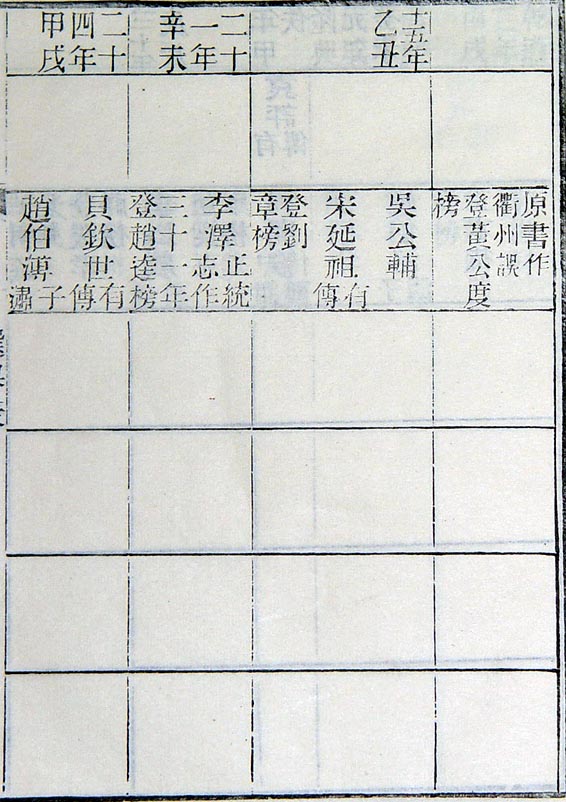 十五年
乙丑
二十
一年
辛未
二十
四年
甲戌
原書作
衢州誤
登黃公度
榜
吳公輔
宋延祖有傳
登劉
章榜
李澤正統志作
三十年
登趙逵榜
貝欽世有傳
趙伯溥子潚